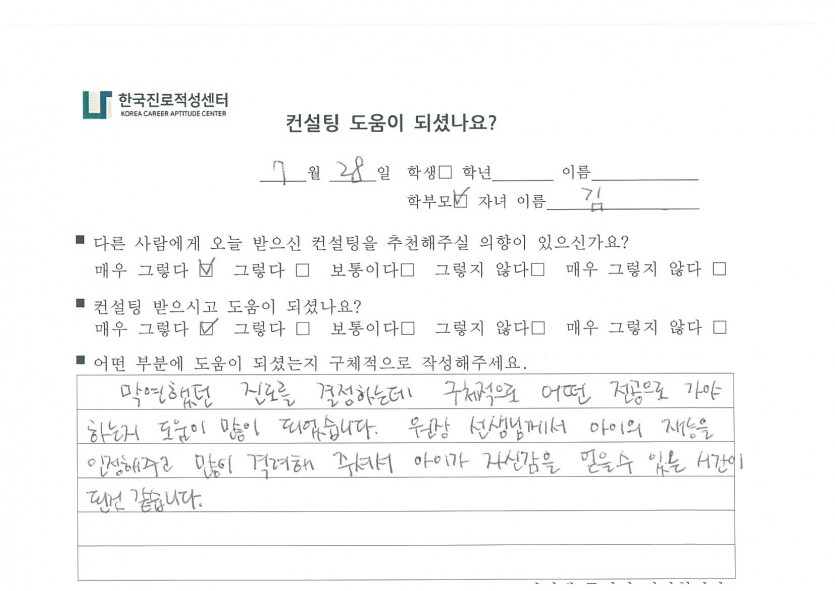 한국진로적성센터
KOREA CAREER APTITUDE CENTER
컨설팅 도움이 되셨나요?
7 월 28 일 학생□ 학년 이름
학부모☑ 자녀 이름 김
■ 다른 사람에게 오늘 받으신 컨설팅을 추천해주실 의향이 있으신가요?
매우 그렇다 ☑ 그렇다 □ 보통이다□ 그렇지 않다□ 매우 그렇지 않다 □
■ 컨설팅 받으시고 도움이 되셨나요?
매우 그렇다 ☑ 그렇다 □ 보통이다□ 그렇지 않다□ 매우 그렇지 않다 □
■ 어떤 부분에 도움이 되셨는지 구체적으로 작성해주세요.
막연했던 진로를 결정하는데 구체적으로 어떤 전공으로 가야
하는지 도움이 많이 되었습니다. 원장 선생님께서 아이의 재능을
인정해주고 많이 격려해 주셔서 아이가 자신감을 얻을수 있는 시간이
된것 같습니다.